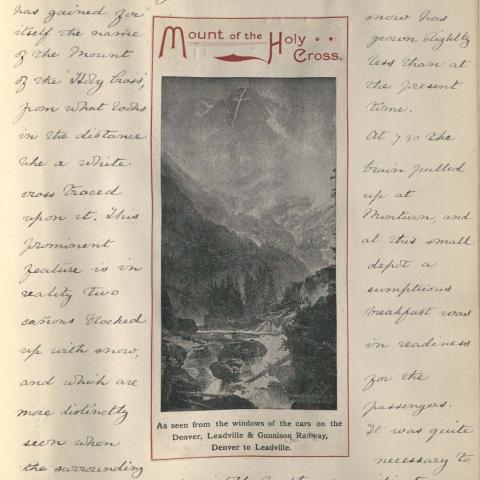 has gained for
itself the name
of the Mount
of the 'Holy Cross',
from what looks
in the distance
like a white
cross traced
upon it. This
prominent
feature is in
reality two
cañons blocked
up with snow,
and which are
more distinctly
seen when
the surrounding
Mount of the Holy
Cross.
As seen from the windows of the cars on the
Denver, Leadville & Gunnison Railway,
Denver to Leadville.
snow has
grown slightly
less than at
the present
time.
At 7 30 the
train pulled
up at
Minturn, and
at this small
depot a
sumptuous
breakfast was
in readiness
for the
passengers.
It was quite
necessary to